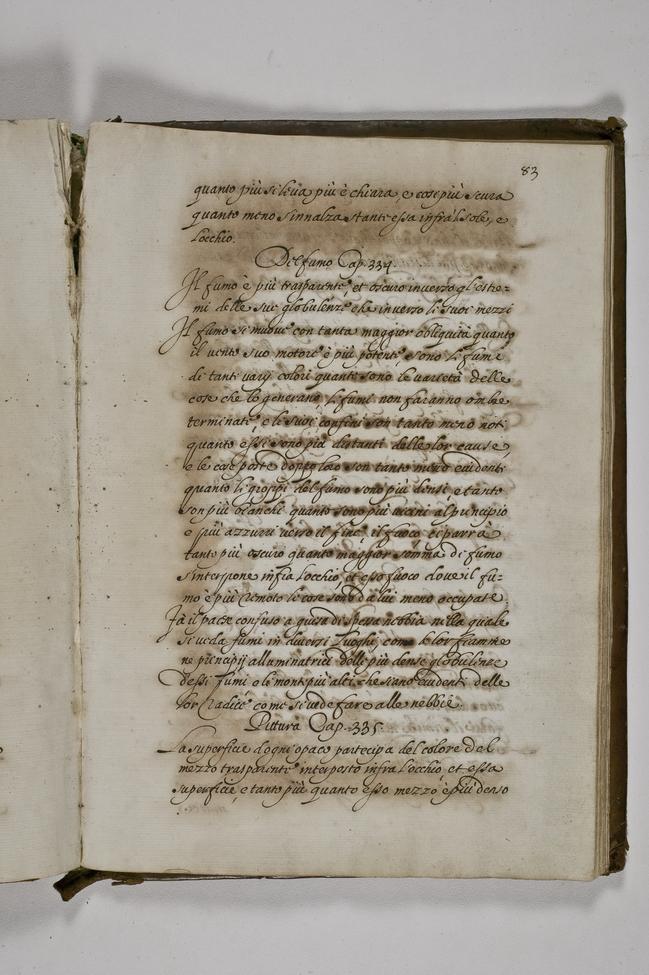 83
quanto più si leua più è chiara, e così più scura
quanto meno s'innalza stante essa infra'l sole, e
l'occhio.
Del fumo Cap. 334.
Il fumo è più trasparente, et oscuro inuerso gl'estre=
mi delle sue globulenze che inuerso li suoi mezzi
Il fumo si muoue con tanta maggior obliquità quanto
il vento suo motore è più potente, sono li fumi
di tanti varij colori quante sono le varietà delle
cose che lo generano, li fumi non faranno ombre
terminate, e li suoi confini son tanto meno noti
quanto essi sono più distanti delle lor cause,
e le cose poste doppo loro son tanto meno euidenti
quanto li groppi del fumo sono più densi e tanto
son più bianchi quanto sono più vicini al principio
e più azzurri verso il fine, il fuoco ci parrà
tanto più oscuro quanto maggior somma di fumo
s'interpone infra l'occhio, et esso fuoco doue il fu=
mo è più remoto le cose sono da lui meno occupate
Fà il paese confuso a guisa di spessa nebbia nella quale
si veda fumi in diuersi luoghi, come le lor fiamme
ne principij alluminatrici delle più dense globulenze
d'essi fumi e li monti più alti che siano euidenti delle
lor radice come si vede fare alle nebbie.
Pittura Cap. 335.
La superficie d'ogni opaco partecipa del colore del
mezzo trasparente interposto infra l'occhio, et essa
superficie, e tanto più quanto esso mezzo è più denso